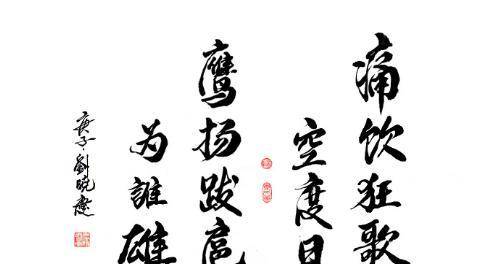 痛饮狂歌
空度日
鹰扬跋扈
为誰雄
庚子劉晓